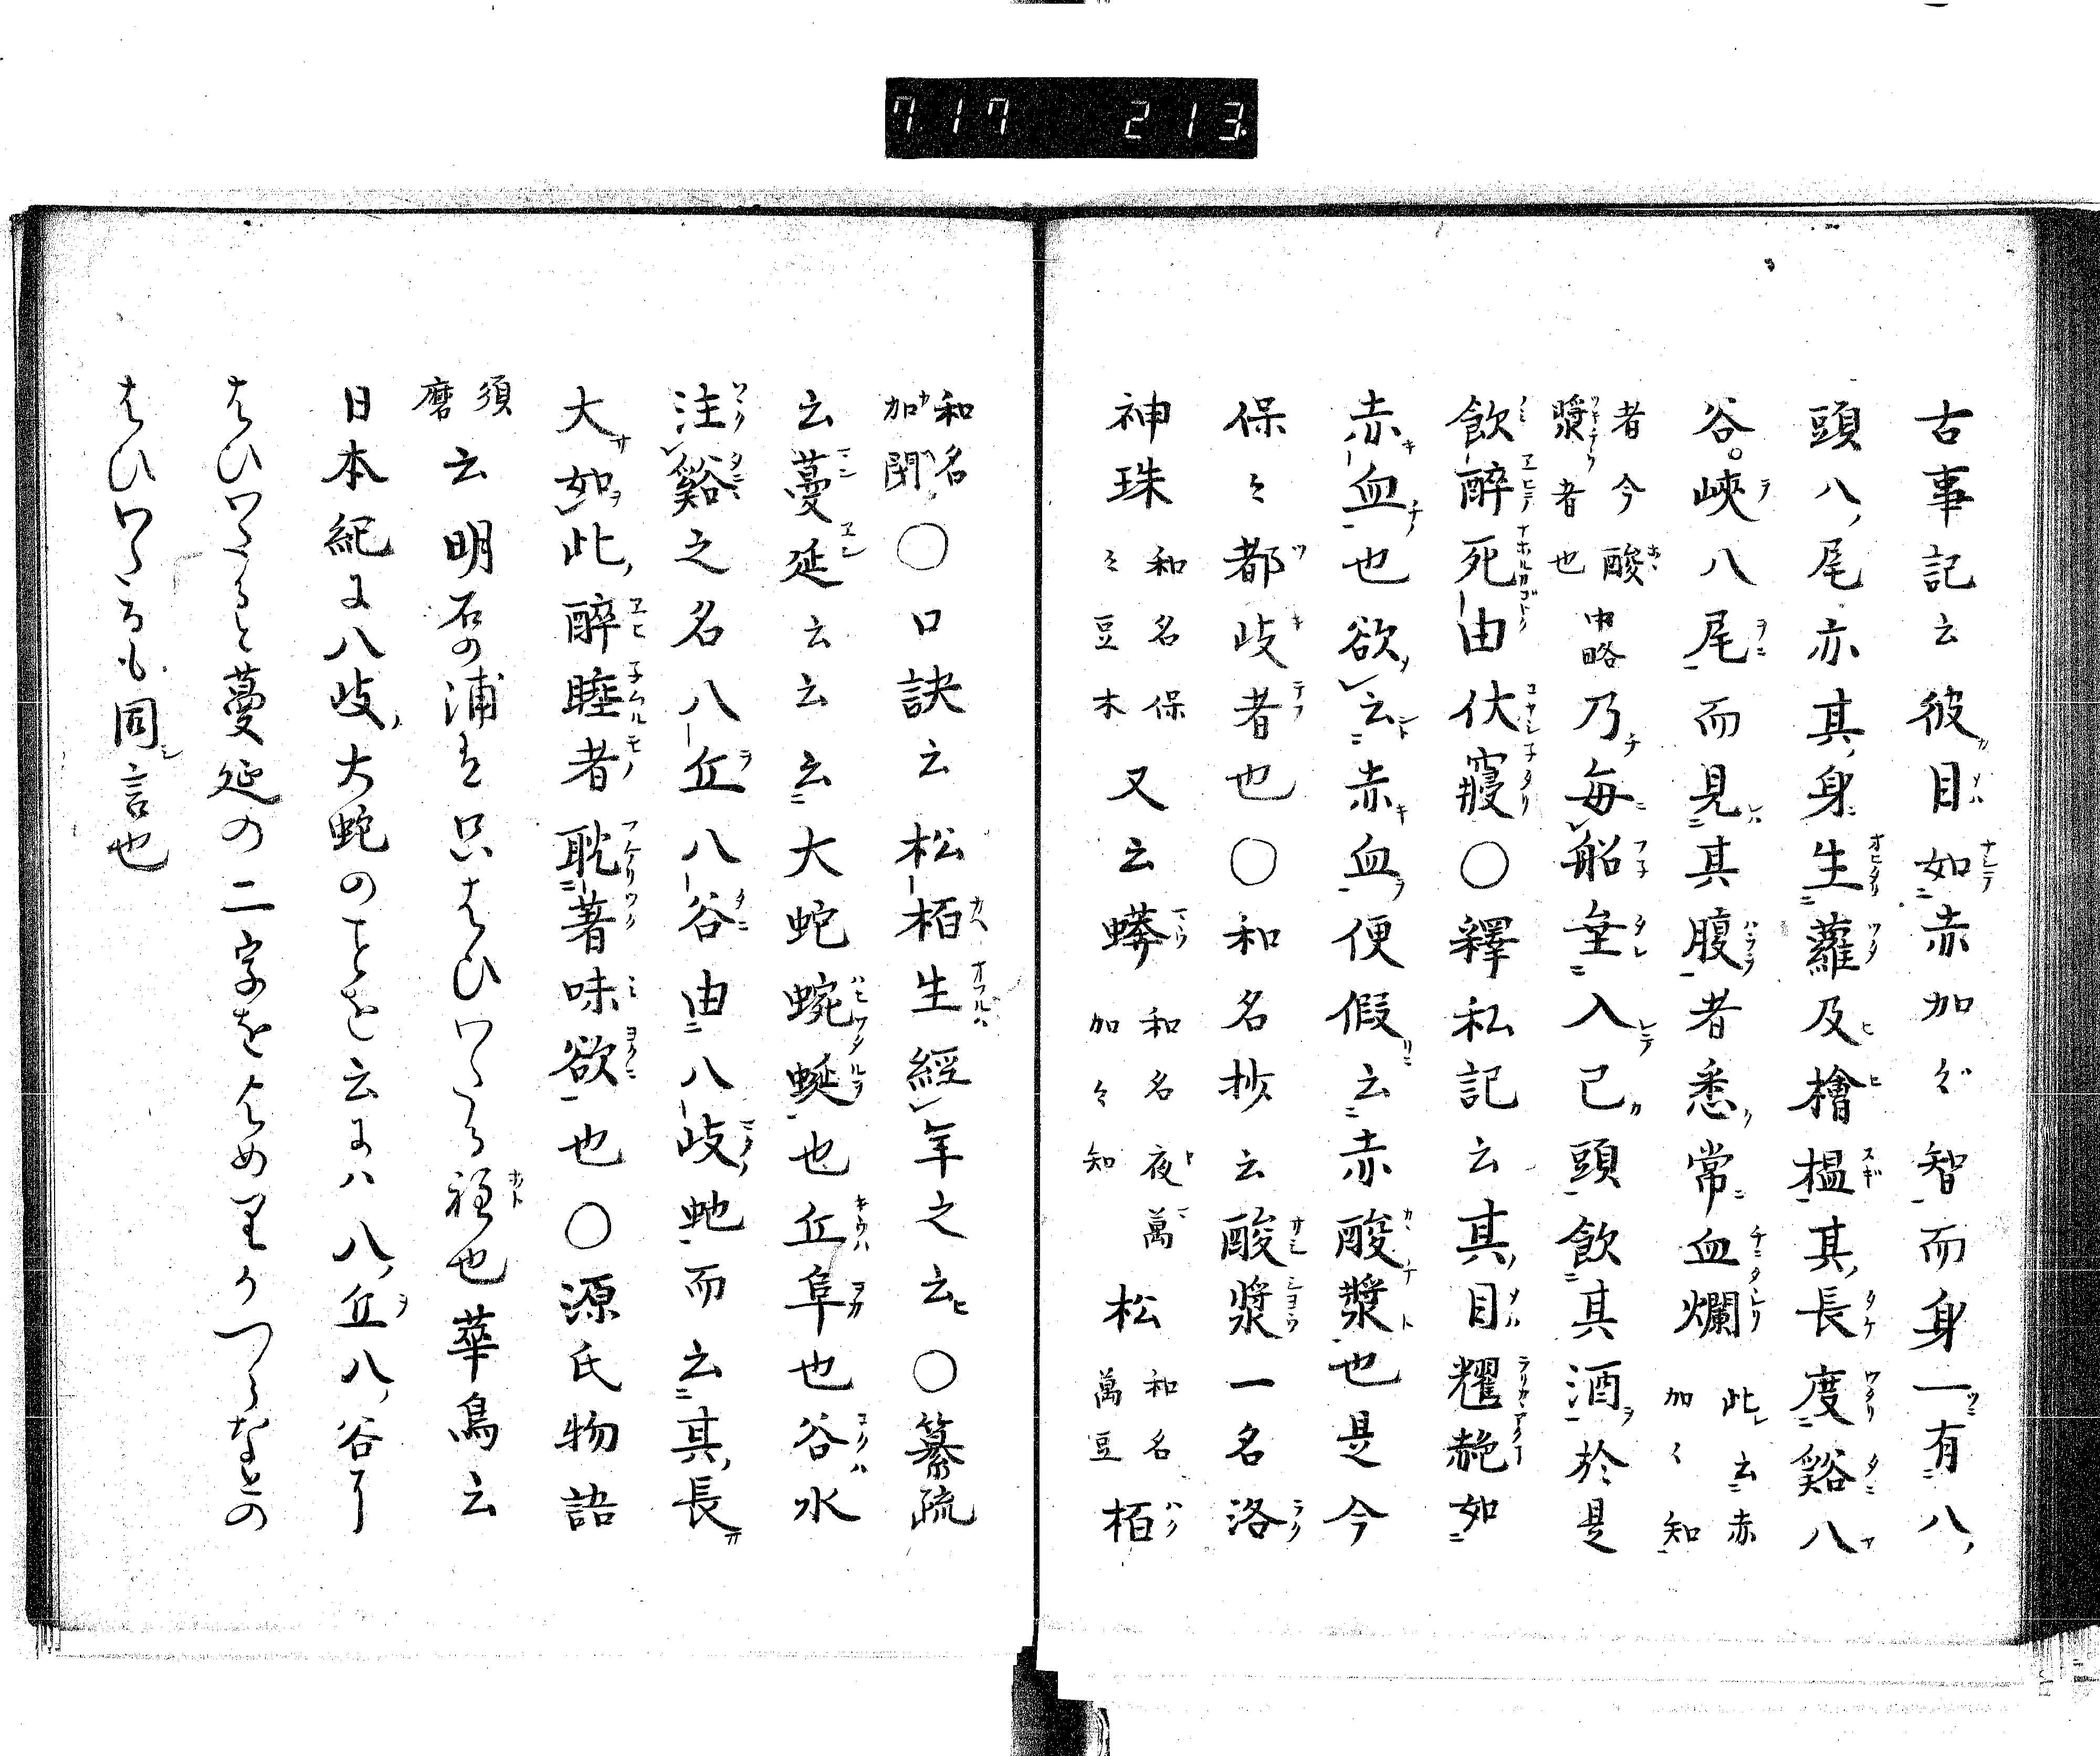 717 213
古事記云彼目如赤加ヾ智而身一有八
頭八尾亦其身生蘿及檜榲其長度谿八
谷峽八尾而見其腹者悉常血爛此云赤加〻知
者今酸漿者也中略乃每船垂入己頭飲其酒於是
飲醉死由伏寢○釋私記云其目耀赩如
赤血也欲云赤血便假云赤酸漿也是今
保〻都岐者也○和名抄云酸漿一名洛
神珠和名保〻豆木又云蟒和名夜萬加〻知松和名萬豆栢
和名加閇○口訣云松栢生經年之云○纂疏
云蔓延云云云大蛇蜿蜒也丘阜也谷水
注谿之名八丘八谷由八岐虵而云其長
大如此醉睡者耽著味欲也○源氏物語
須磨云明石の浦は只はひわたる程也華鳥云
日本紀に八岐大蛇のことを云には八丘八谷に
はひわたると蔓延の二字をよめりかつらなとの
はひわたるも同言也